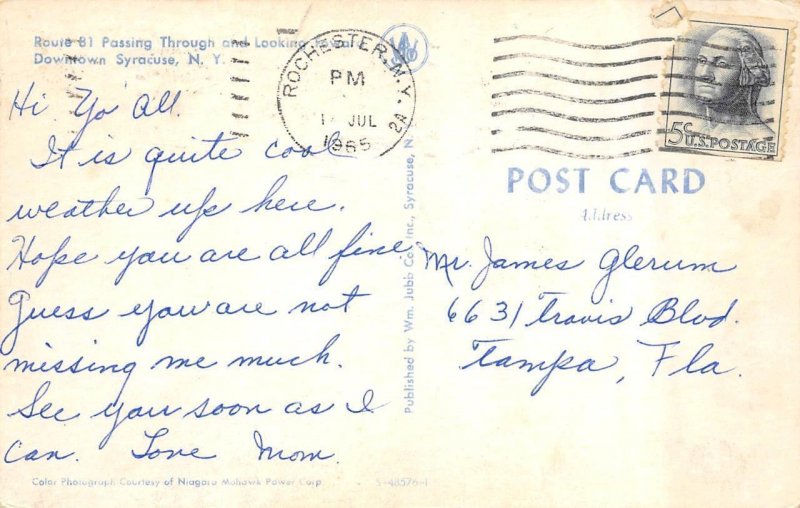 Route 81 Passing Through and Looking Toward
Downtown Syracuse, N. Y.
Hi Yo' All.
It is quite cool
weather up here.
Hope you are all fine.
Guess you are not
missing me much.
See you soon as I
can. Love Mom.
Color Photograph Courtesy of Niagara Mohawk Power Corp.
S-48576-1
Published by Wm. Jubb Co., Inc., Syracuse, N.
ROCHESTER, N.Y.
PM
JUL
1965
5¢ U.S. POSTAGE
POST CARD
Address
Mr. James Glerum
6631 Travis Blvd.
Tampa, Fla.